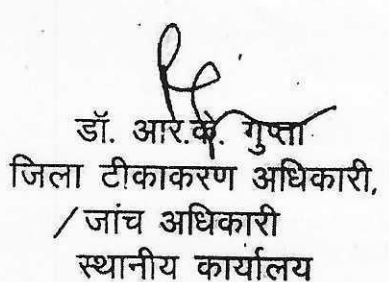 डॉ. आर.के. गुप्ता
जिला टीकाकरण अधिकारी,
/जांच अधिकारी
स्थानीय कार्यालय